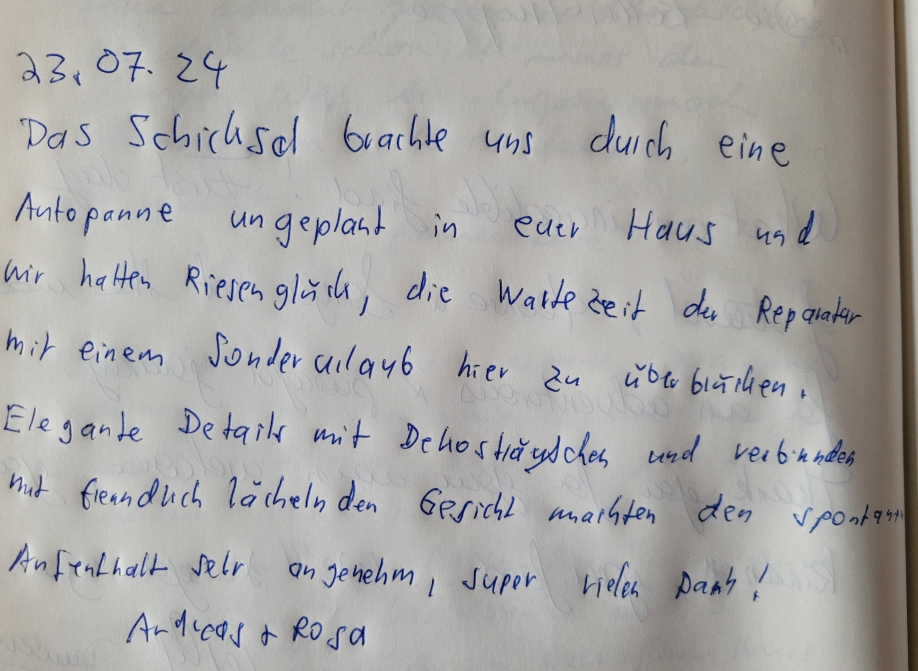 23.07.24
Das Schicksal brachte uns durch eine
Autopanne ungeplant in euer Haus und
wir hatten Riesenglück, die Wartezeit der Reparatur
mit einem Sonderurlaub hier zu überbrücken.
Elegante Details mit Dekosträuschen und verbunden
mit freundlich lächelnden Gesicht machten den spontanen
Aufenthalt sehr angenehm, super vielen Dank!
Andreas + Rosa